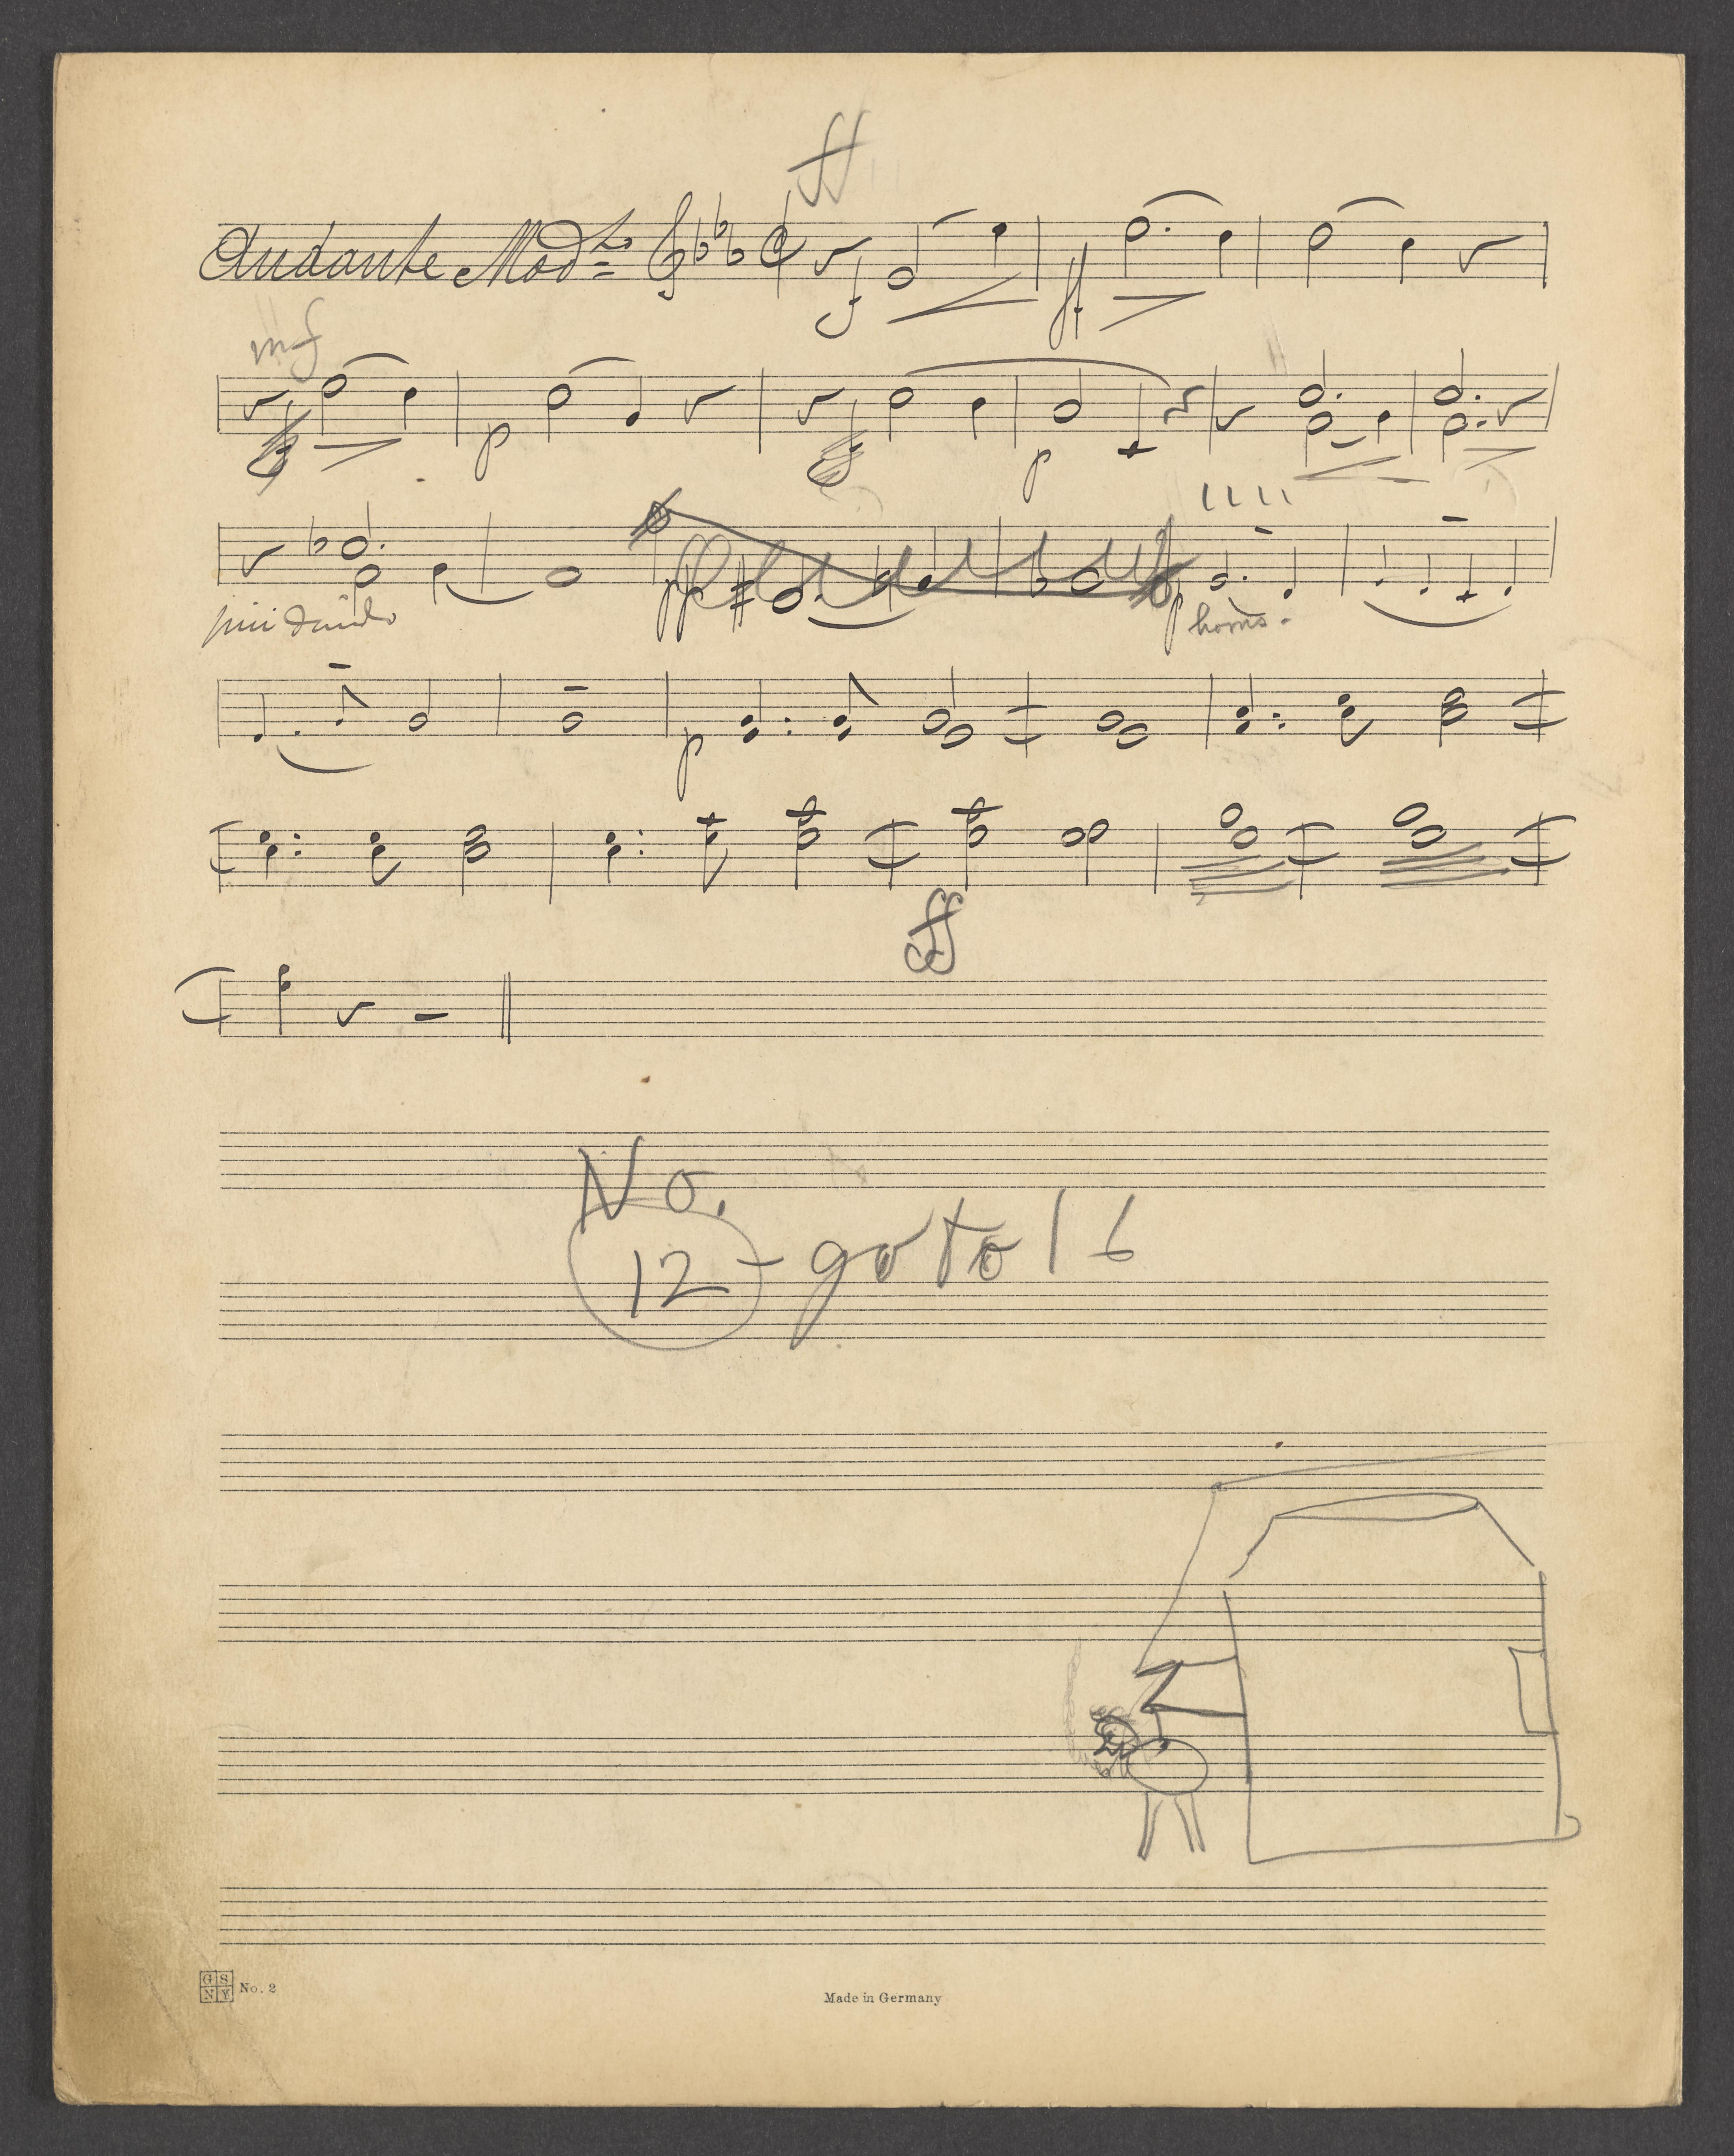 ff
Andante Modto
f ff
mf
p p
pp p horns.
p
ff
No.
12 - go to 16
GS
NY No. 2
Made in Germany